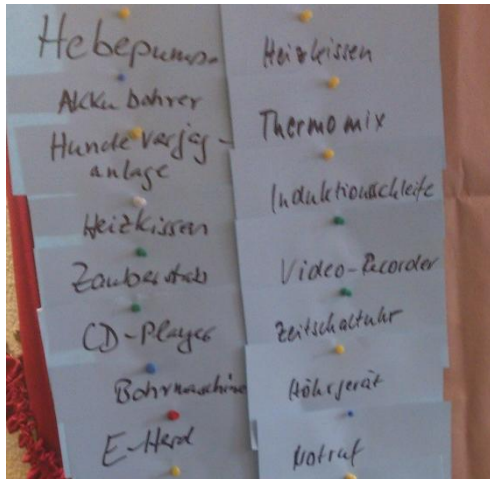 Hebepumpe
Akkubohrer
Hundeverjag-
anlage
Heizkissen
Zauberstab
CD-Player
Bohrmaschine
E-Herd
Heizkissen
Thermomix
Induktionsschleife
Video-Recorder
Zeitschaltuhr
Höhrgerät
Notruf